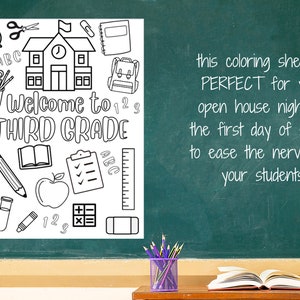 ABC
Welcome to
THIRD GRADE
123
ABC
123
123
this coloring shee
PERFECT for y
open house nigh
the first day of
to ease the nerv
your students